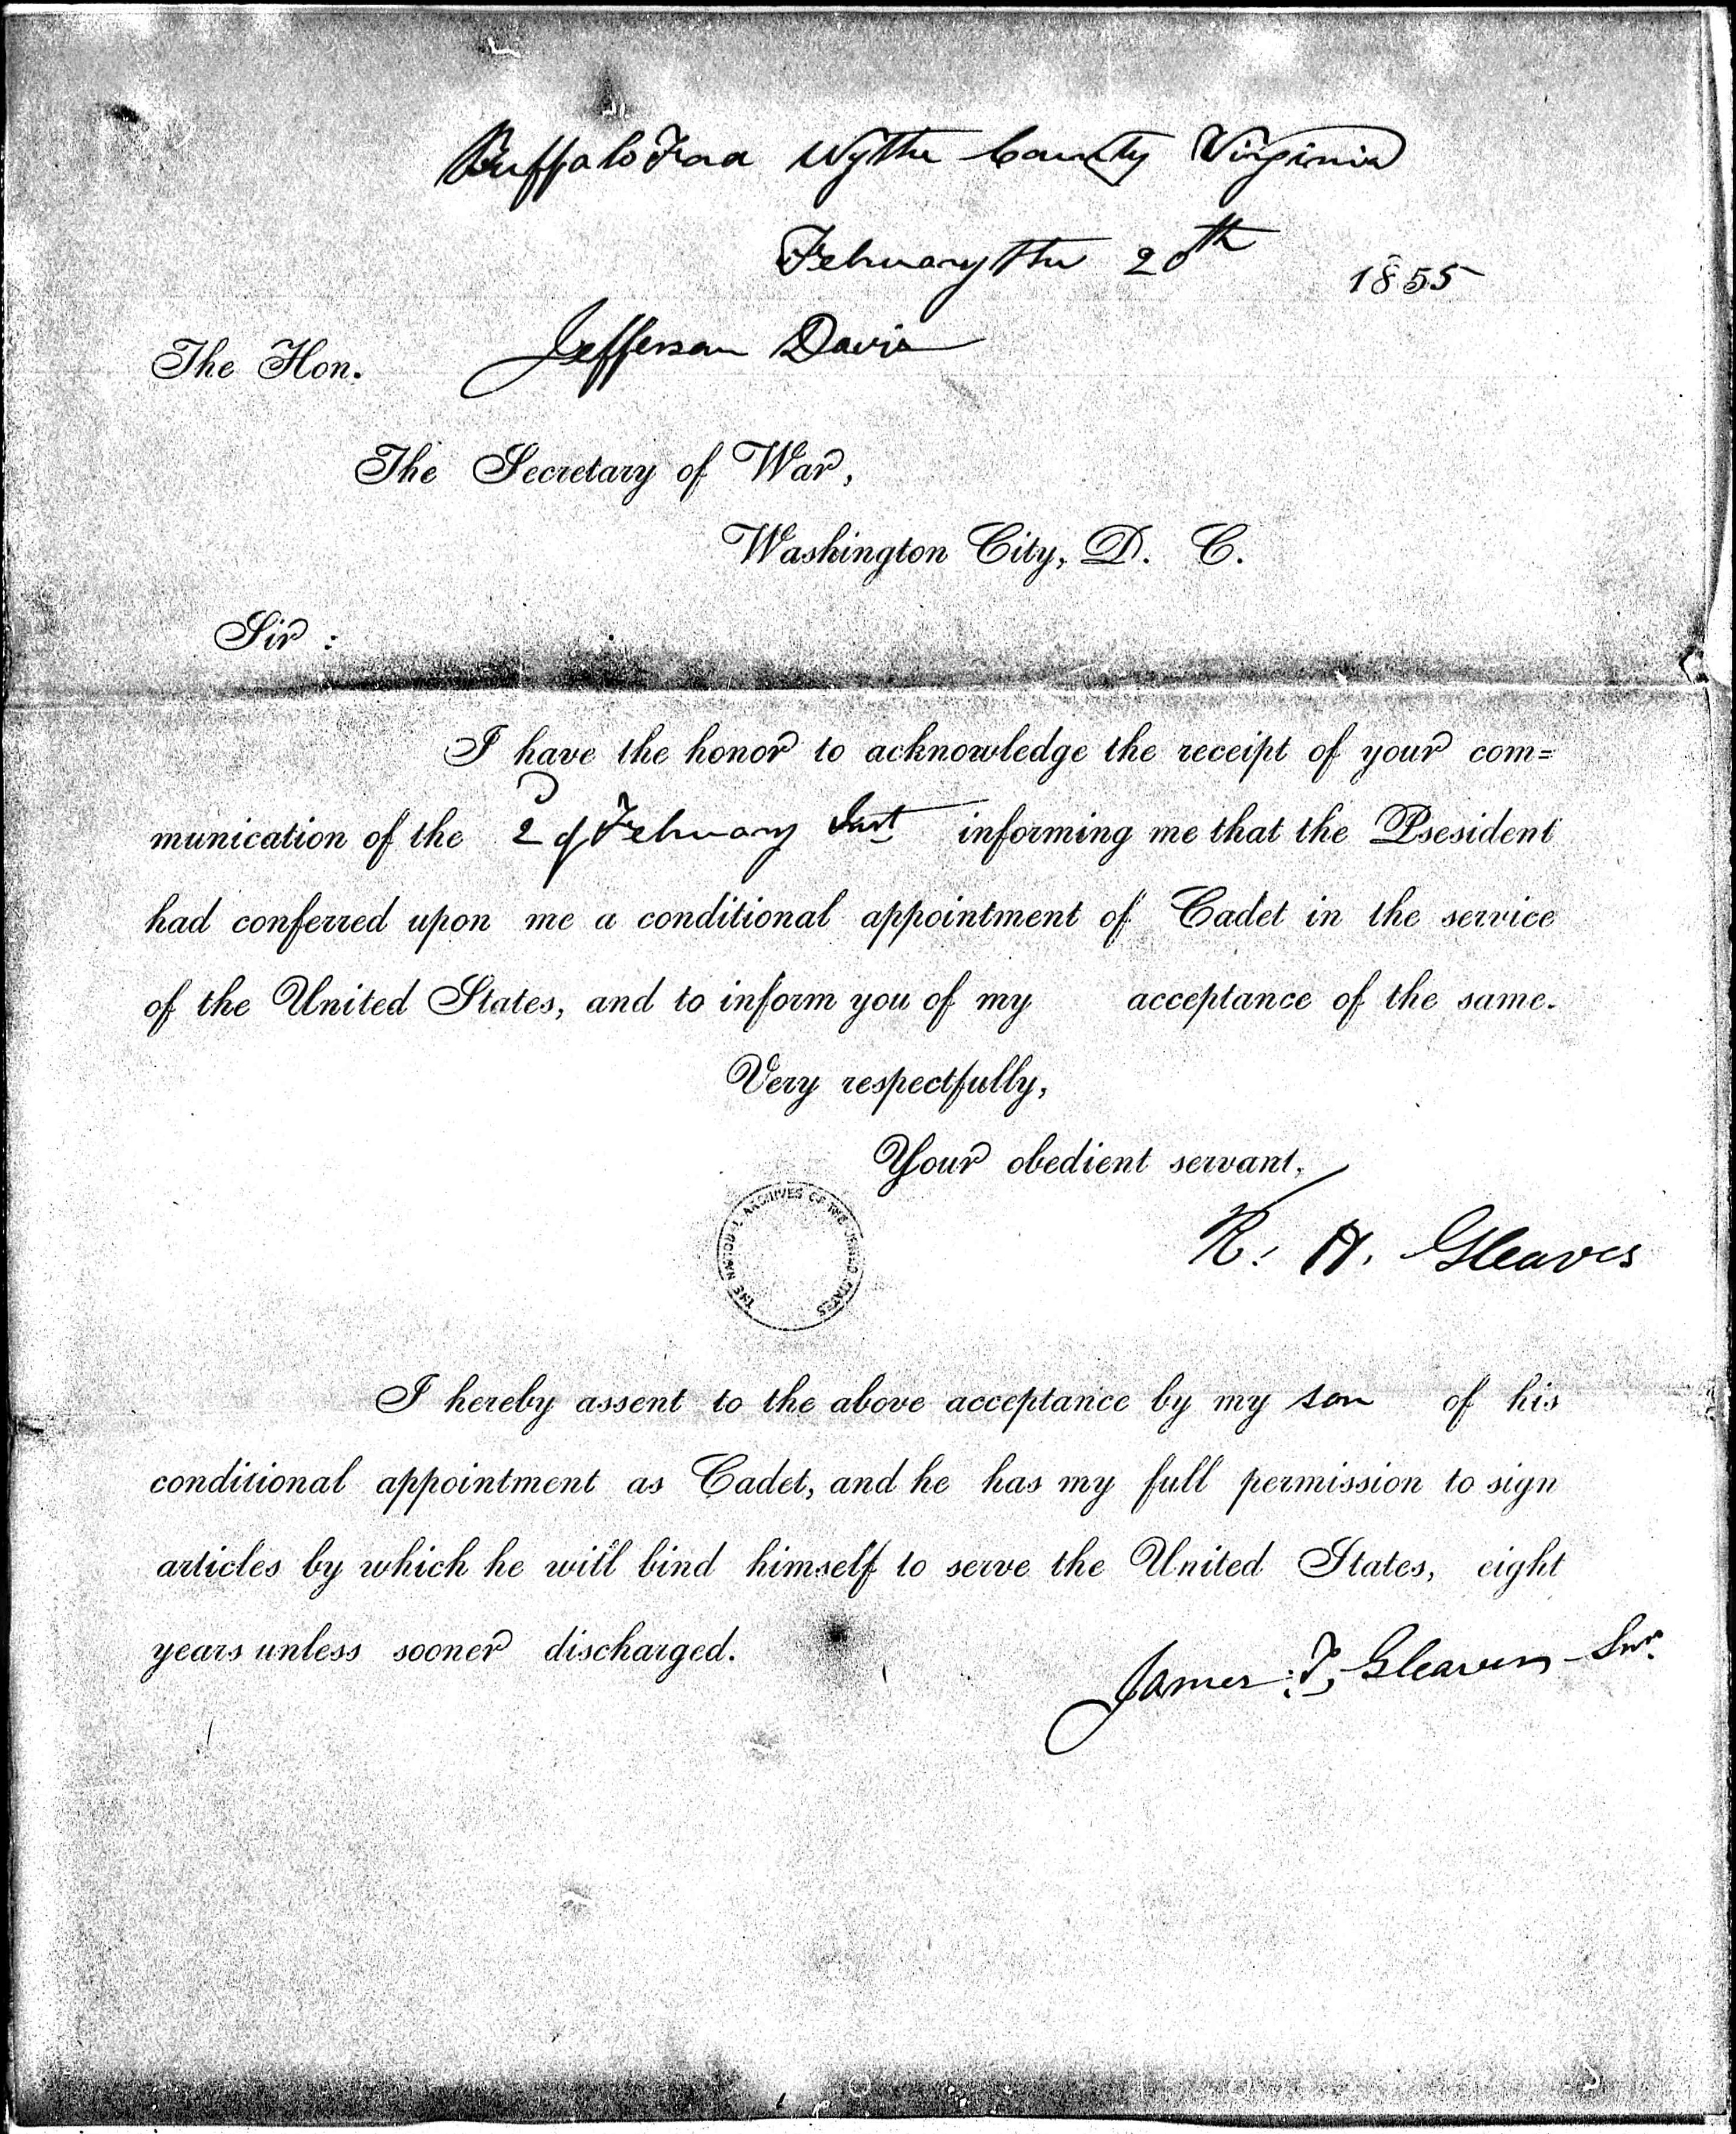 Buffalo Ford Wythe County Virginia
February the 20th 1855
The Hon. Jefferson Davis
The Secretary of War,
Washington City, D. C.
Sir :
I have the honor to acknowledge the receipt of your com=
munication of the 2d of February Inst informing me that the Psesident
had conferred upon me a conditional appointment of Cadet in the service
of the United States, and to inform you of my acceptance of the same.
Very respectfully,
Your obedient servant,
R. H. Gleaves
THE NATIONAL ARCHIVES OF THE UNITED STATES
I hereby assent to the above acceptance by my son of his
conditional appointment as Cadet, and he has my full permission to sign
articles by which he will bind himself to serve the United States, eight
years unless sooner discharged.
James T. Gleaves Snr.